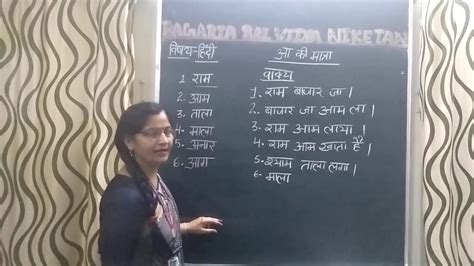 BAGARIA BAL VIDYA NIKETAN
विषय-हिंदी
आ की मात्रा
1. राम
2. आम
3. ताला
4. माला
5. अनार
6. आग
वाक्य
1. राम बाजार जा।
2. बाजार जा आम ला।
3. राम आम लाया।
4. राम आम खाता है।
5. श्याम ताला लगा।
6. माला